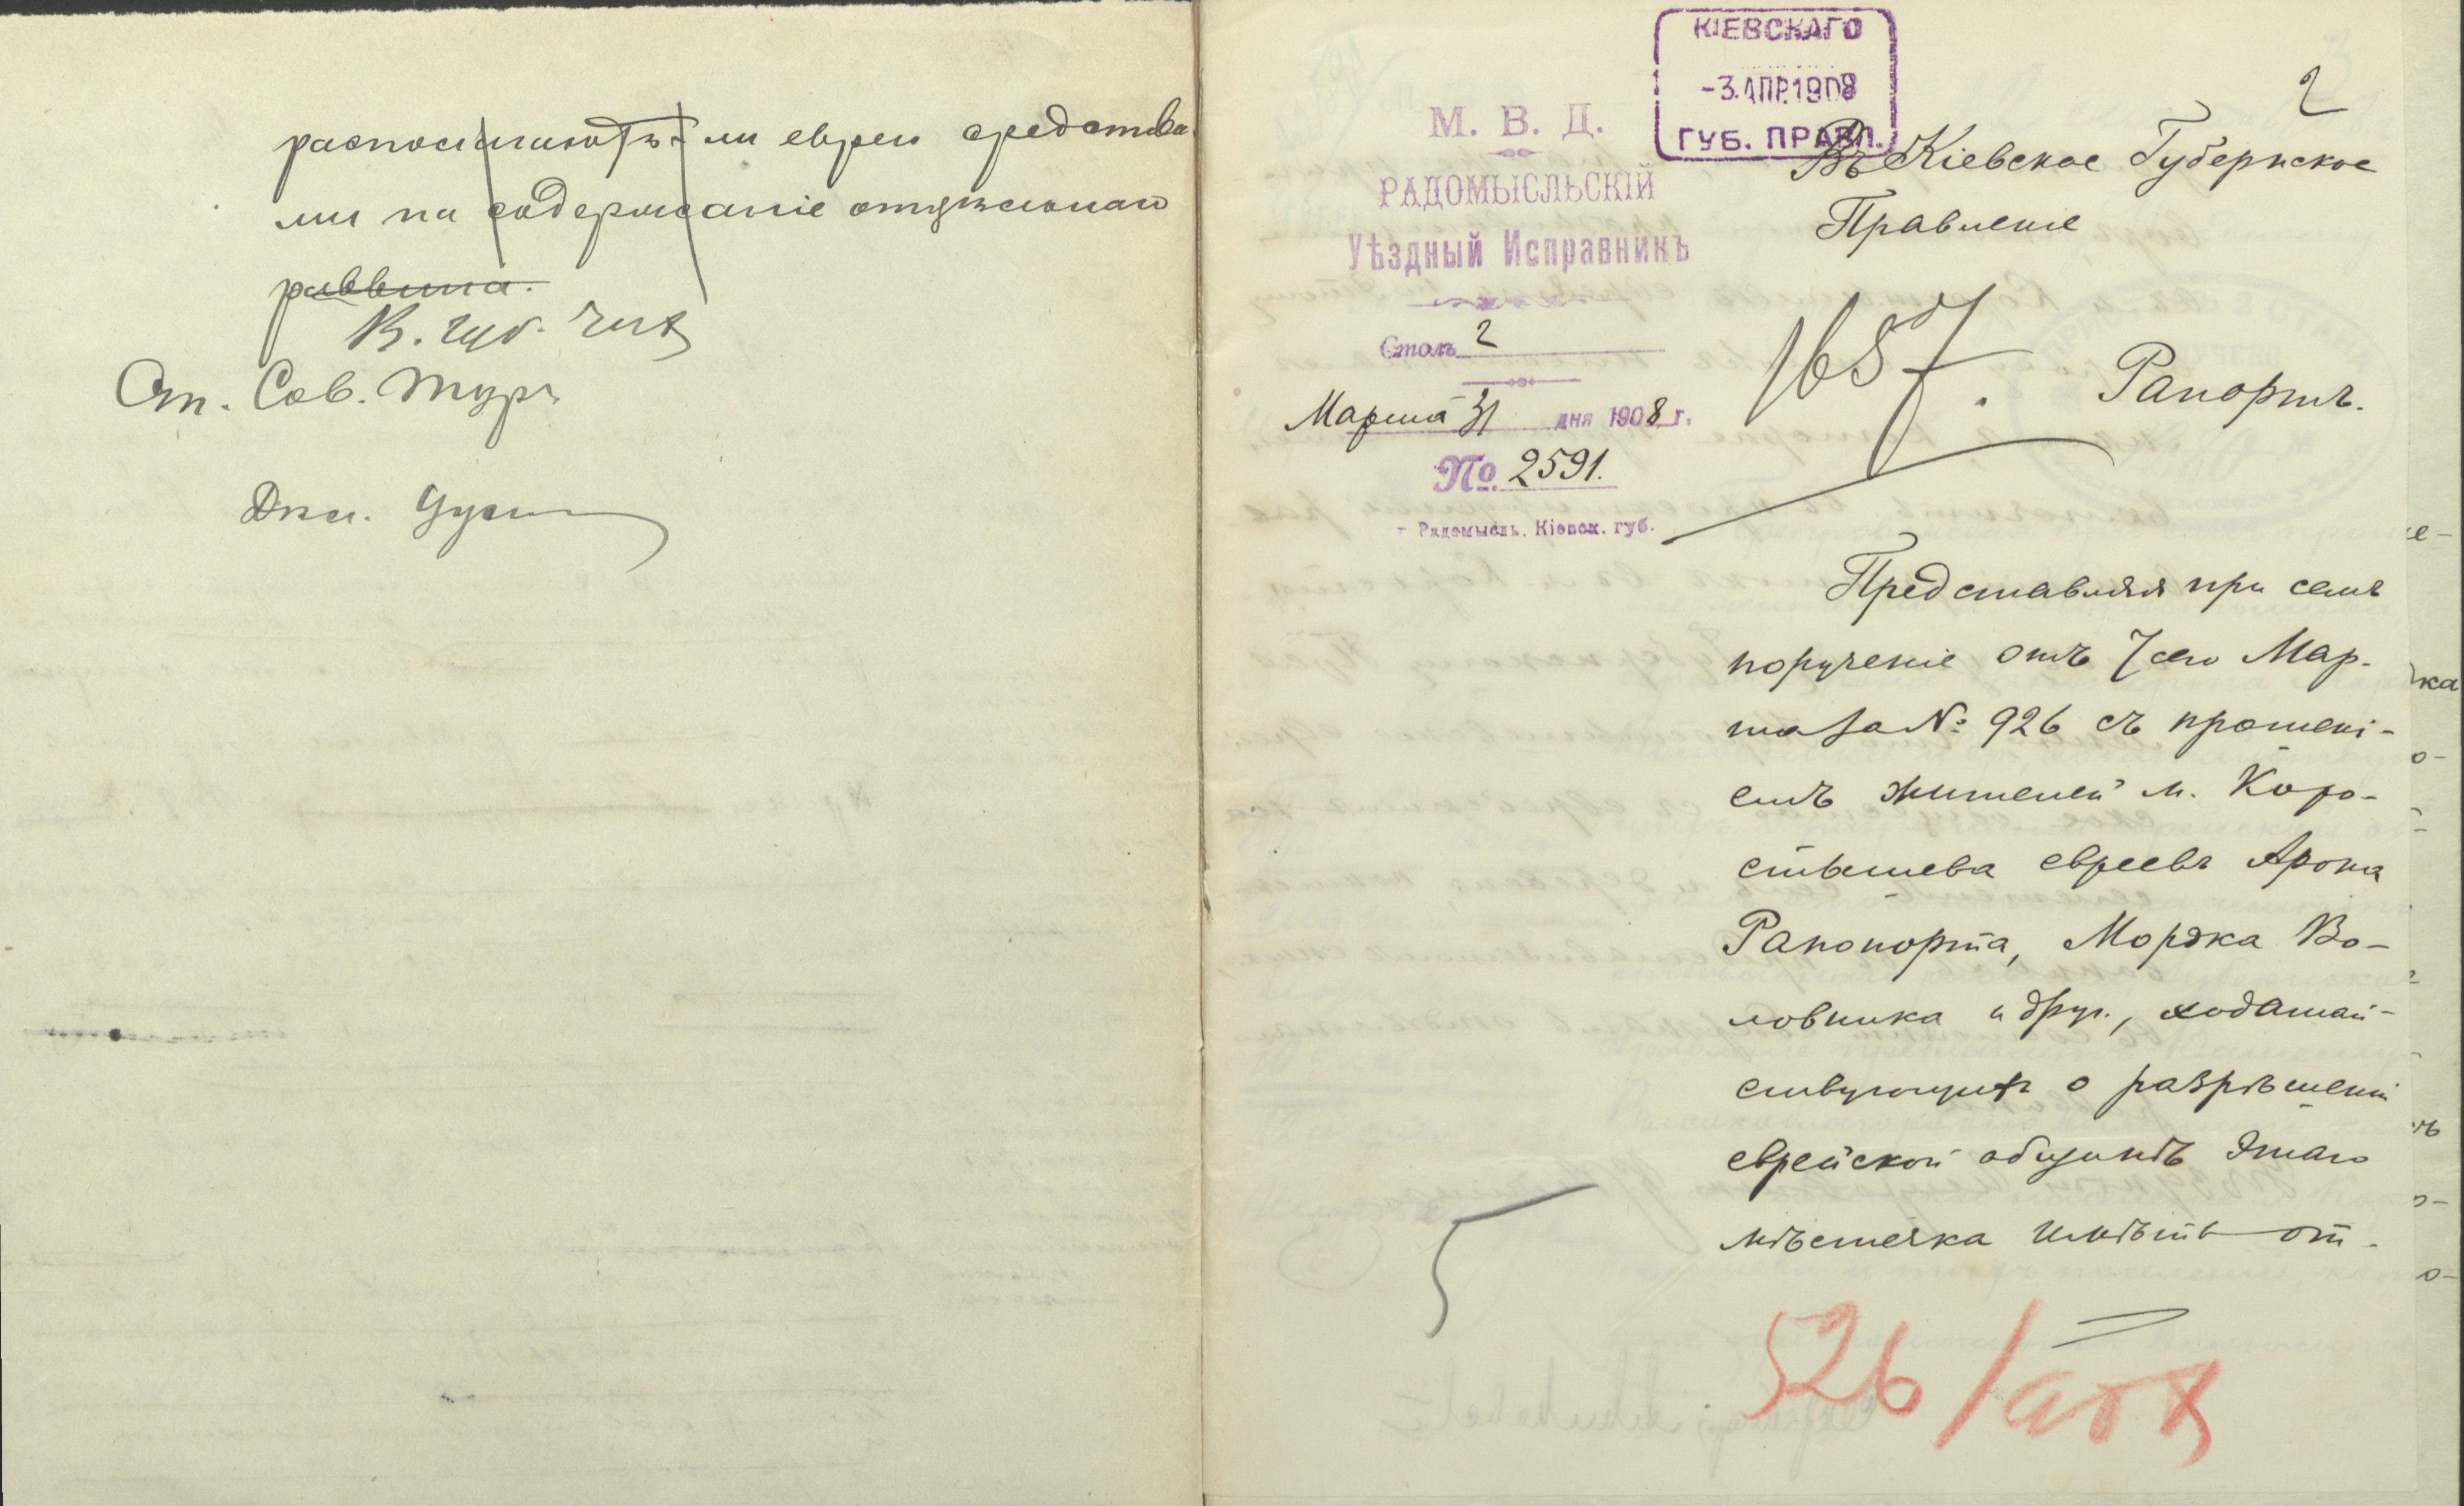 располагаютъ-ли евреи средства
ми на содержаніе отдѣльнаго
раввина.
В. Губ.
Ст. Сов.
КІЕВСКАГО
-3.АПР.1908
ГУБ. ПРАВЛ.
2
М. В. Д.
РАДОМЫСЛЬСКІЙ
Уѣздный Исправникъ
Столъ 2
Марта 31 дня 1908 г.
№ 2591.
г. Радомысль, Кіевск. губ.
Въ Кіевское Губернское
Правленіе
1657.
Рапортъ.
Представляя при семъ
порученіе отъ 7 сего Мар-
та за № 926 съ прошені-
емъ жителей м. Коро-
стышева евреевъ Арона
Рапопорта, Мордка Во-
ловника и друг., ходатай-
ствующихъ о разрѣшеніи
еврейской общинѣ этаго
мѣстечка имѣть от-
526/